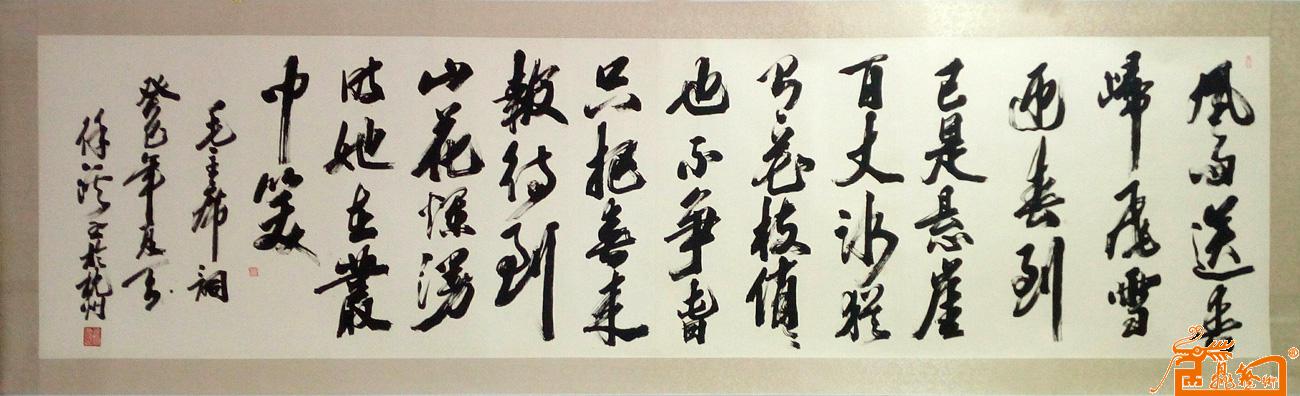 風雨送春
歸飛雪
迎春到
已是悬崖
百丈冰猶
有花枝俏〻
也不爭春
只把春来
報待到
山花爛漫
时她在叢
中笑
毛主席詞
癸巳年夏
徐 书於杭州